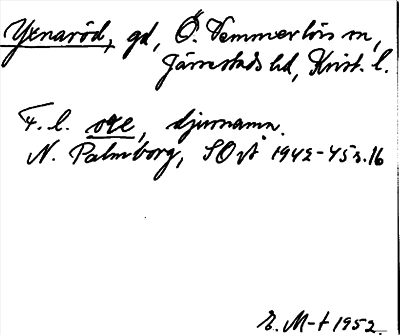 Yxnaröd, gd, Ö. Vemmerlövs sn,
Järrestads hd, Krist. l.
F. l. oxe, djurnamn.
N. Palmborg, SOÅ 1942-45 s. 16
E. M-t 1952.